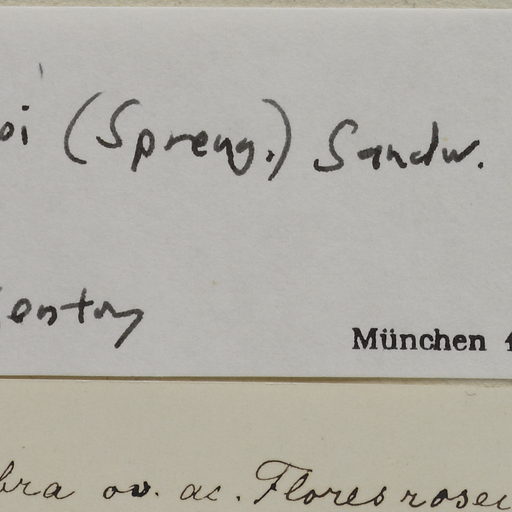 oi (Spreng.) Sandw.
Gentry
München 4
bra ov. ac. Flores rosei